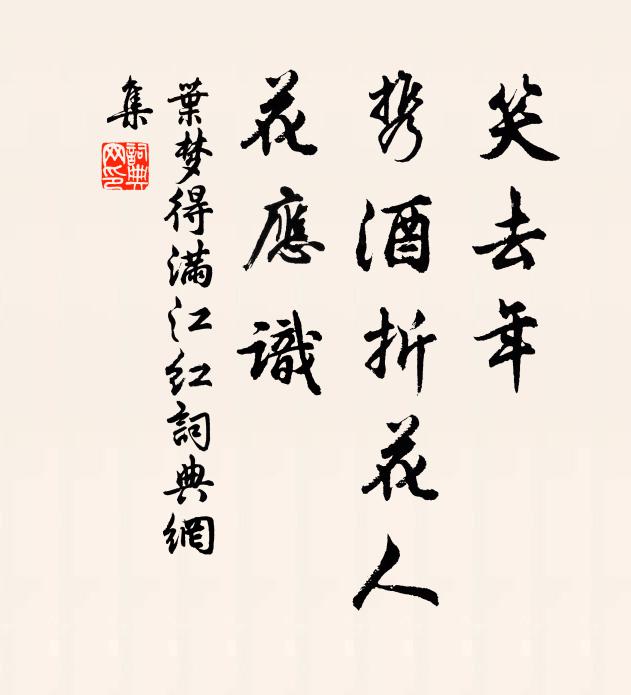 笑去年
携酒折花人
花應識
葉梦得满江红詞典網
集
詞典網印